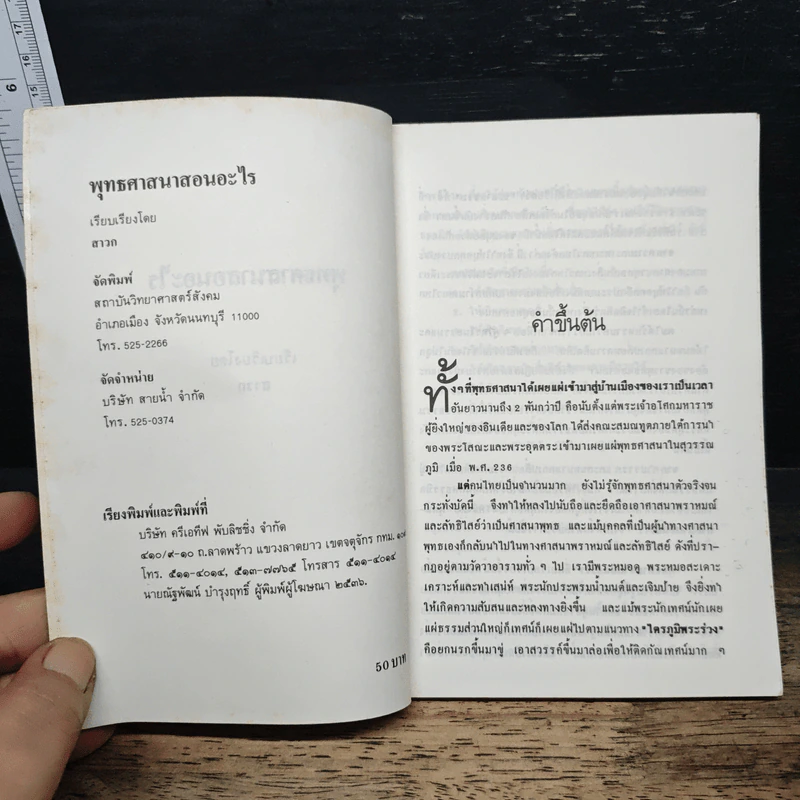 พุทธศาสนาสอนอะไร
เรียบเรียงโดย
สาวก
จัดพิมพ์
สถาบันวิทยาศาสตร์สังคม
อำเภอเมือง จังหวัดนนทบุรี 11000
โทร. 525-2266
จัดจำหน่าย
บริษัท สายน้ำ จำกัด
โทร. 525-0374
เรียงพิมพ์และพิมพ์ที่
บริษัท ครีเอทีฟ พับลิชชิ่ง จำกัด
๔๑๐/๙-๑๐ ถ.ลาดพร้าว แขวงลาดยาว เขตจตุจักร กทม.
โทร. ๕๑๑-๔๐๑๔, ๕๑๓-๗๗๖๕ โทรสาร ๕๑๑-๔๐๑๔
นายณัฐพัฒน์ บำรุงฤทธิ์ ผู้พิมพ์ผู้โฆษณา ๒๕๓๖.
50 บาท
คำขึ้นต้น
ทั้งๆ ที่พุทธศาสนาได้เผยแผ่เข้ามาสู่บ้านเมืองของเราเป็นเวลา
อันยาวนานถึง 2 พันกว่าปี คือนับตั้งแต่พระเจ้าอโศกมหาราช
ผู้ยิ่งใหญ่ของอินเดียและของโลก ได้ส่งคณะสมณทูตภายใต้การนำ
ของพระโสณะและพระอุตตระเข้ามาเผยแผ่พุทธศาสนาในสุวรรณ
ภูมิ เมื่อ พ.ศ. 236
แต่คนไทยเป็นจำนวนมาก ยังไม่รู้จักพุทธศาสนาตัวจริงจน
กระทั่งบัดนี้ จึงทำให้หลงไปนับถือและยึดถือเอาศาสนาพราหมณ์
และลัทธิไสย์ว่าเป็นศาสนาพุทธ และแม้บุคคลที่เป็นผู้นำทางศาสนา
พุทธเองก็กลับนำไปในทางศาสนาพราหมณ์และลัทธิไสย์ ดังที่ปรา-
กฏอยู่ตามวัดวาอารามทั่ว ๆ ไป เรามีพระหมอดู พระหมอสะเดาะ
เคราะห์และทำเสน่ห์ พระนักประพรมน้ำมนต์และเจิมป้าย จึงยิ่งทำ
ให้เกิดความสับสนและหลงทางยิ่งขึ้น และแม้พระนักเทศน์นักเผย
แผ่ธรรมส่วนใหญ่ก็เทศน์ก็เผยแผ่ไปตามแนวทาง "ไตรภูมิพระร่วง"
คือยกนรกขึ้นมาขู่ เอาสวรรค์ขึ้นมาล่อเพื่อให้ติดกัณเทศน์มาก ๆ
6
15
16
17